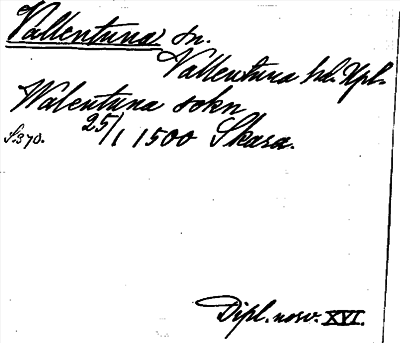 Vallentuna sn.
Vallentuna hd. Upl.
Walentuna sokn
S.370. 25/1 1500 Skara.
Dipl. norv. XVI.